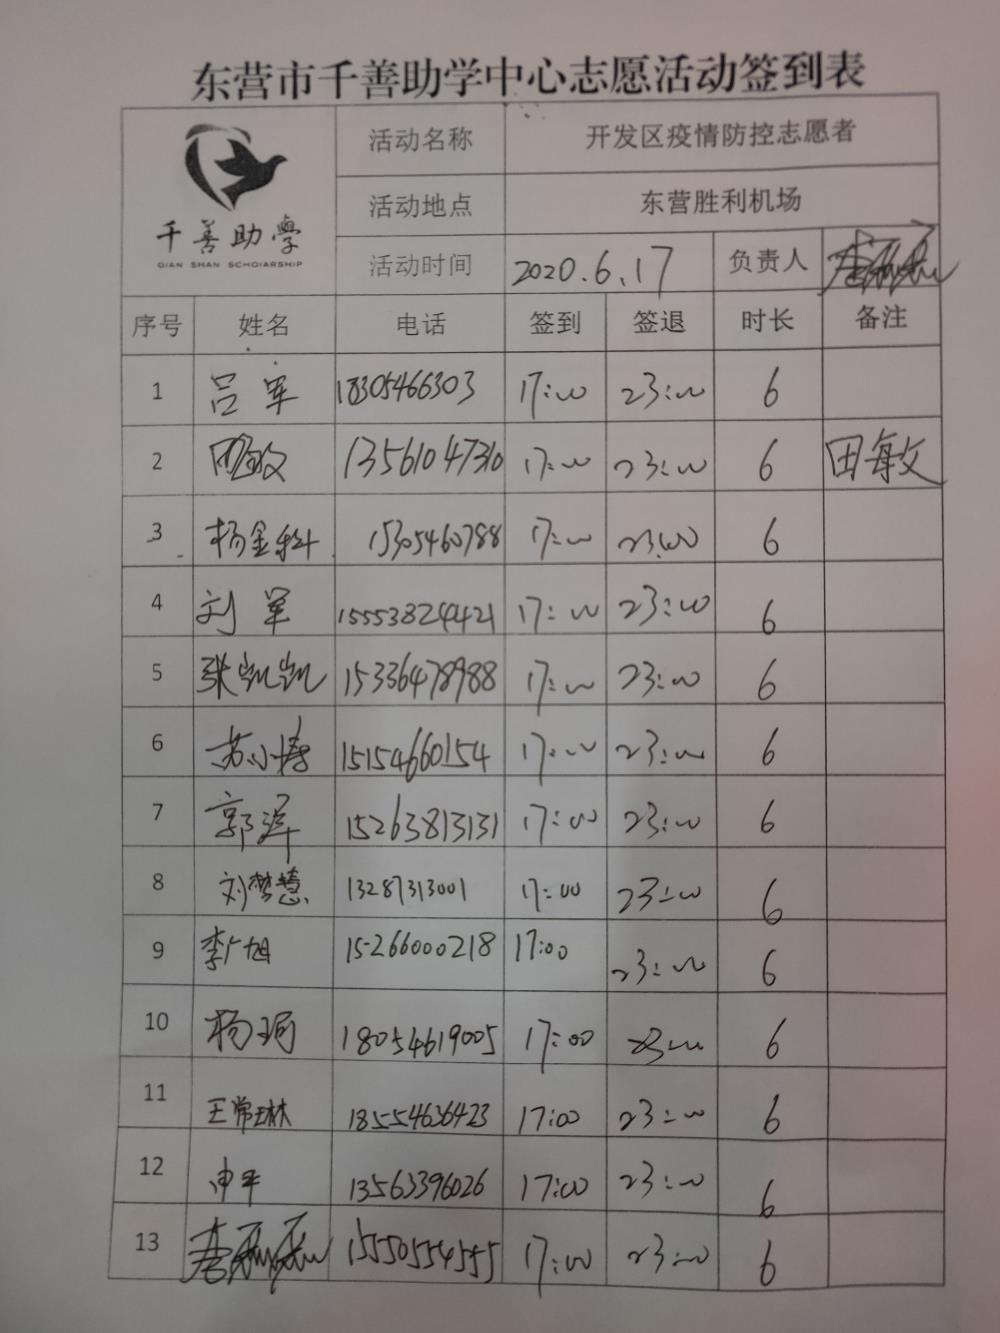 东营市千善助学中心志愿活动签到表
千善助學
QIAN SHAN SCHOIARSHIP
活动名称 开发区疫情防控志愿者
活动地点 东营胜利机场
活动时间 2020.6.17 负责人
序号 姓名 电话 签到 签退 时长 备注
1 吕军 18305466303 17:00 23:00 6
2 田敏 13561047310 17:00 23:00 6 田敏
3 杨金科 15305460788 17:00 23:00 6
4 刘军 15553824421 17:00 23:00 6
5 张凯凯 15336478988 17:00 23:00 6
6 苏小涛 15154660154 17:00 23:00 6
7 郭洋 15263813131 17:00 23:00 6
8 刘梦慧 13287313001 17:00 23:00 6
9 李广旭 15266000218 17:00 23:00 6
10 杨 18054619005 17:00 23:00 6
11 王常琳 18554636423 17:00 23:00 6
12 申平 13563396026 17:00 23:00 6
13 15550554555 17:00 23:00 6